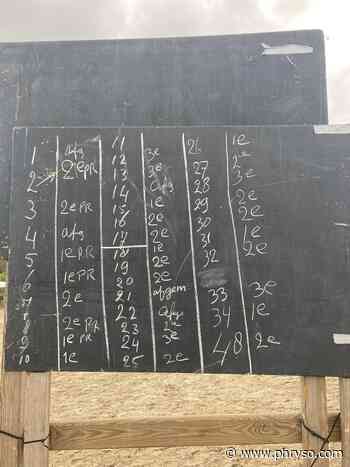 1 afg
2 2e PR
3 2e PR
4 afg
5 1e PR
6 1e PR
7 2e
8 2e PR
9 1e PR
10 1e
11
12 3e
13 3e
14 afg
15 1e
16 2e
17 2e
18 1e
19 2e
20 2e
21 afgem
22 afg
23 2e
24 3e
25 2e
26 1e
27 2e
28 3e
29 2e
30 2e
31 1e
32 2e
33 3e
34 1e
48 2e
www.phryso.com